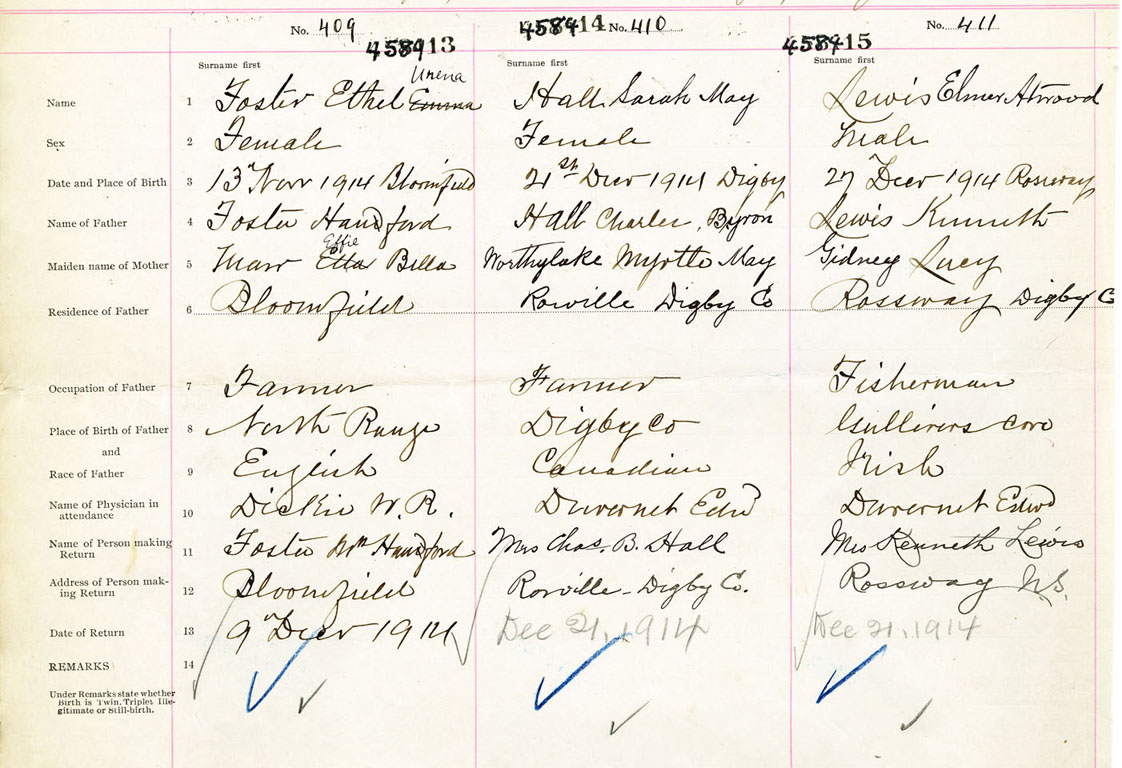 No. 409 45891410 No. 410 No. 411
45891413 45891415
Surname first Surname first Surname first
Unena
Name 1 Foster Ethel Emma Hall Sarah May Lewis Elmer Atwood
Sex 2 Female Female Male
Date and Place of Birth 3 13" Novr 1914 Bloomfield 21st Decr 1914 Digby 27 Decr 1914 Rossway
Name of Father 4 Foster Handford Hall Charles Byron Lewis Kenneth
Effie
Maiden name of Mother 5 Marr Etta Bella Worthylake Myrtle May Gidney Lucy
Residence of Father 6 Bloomfield Rorville Digby Co Rossway Digby Co
Occupation of Father 7 Farmer Farmer Fisherman
Place of Birth of Father 8 North Range Digby Co Gullivers Cove
and
Race of Father 9 English Canadian Irish
Name of Physician in
attendance 10 Dickie W. R. Duvernet Edwd Duvernet Edwd
Name of Person making
Return 11 Foster Handford Mrs Chas. B. Hall Mrs Kenneth Lewis
Address of Person mak-
ing Return 12 Bloomfield Rorville - Digby Co. Rossway N.S.
Date of Return 13 9" Decr 1914 Dec 21, 1914 Dec 21, 1914
REMARKS 14
Under Remarks state whether
Birth is Twin, Triplet Ille-
gitimate or Still-birth.